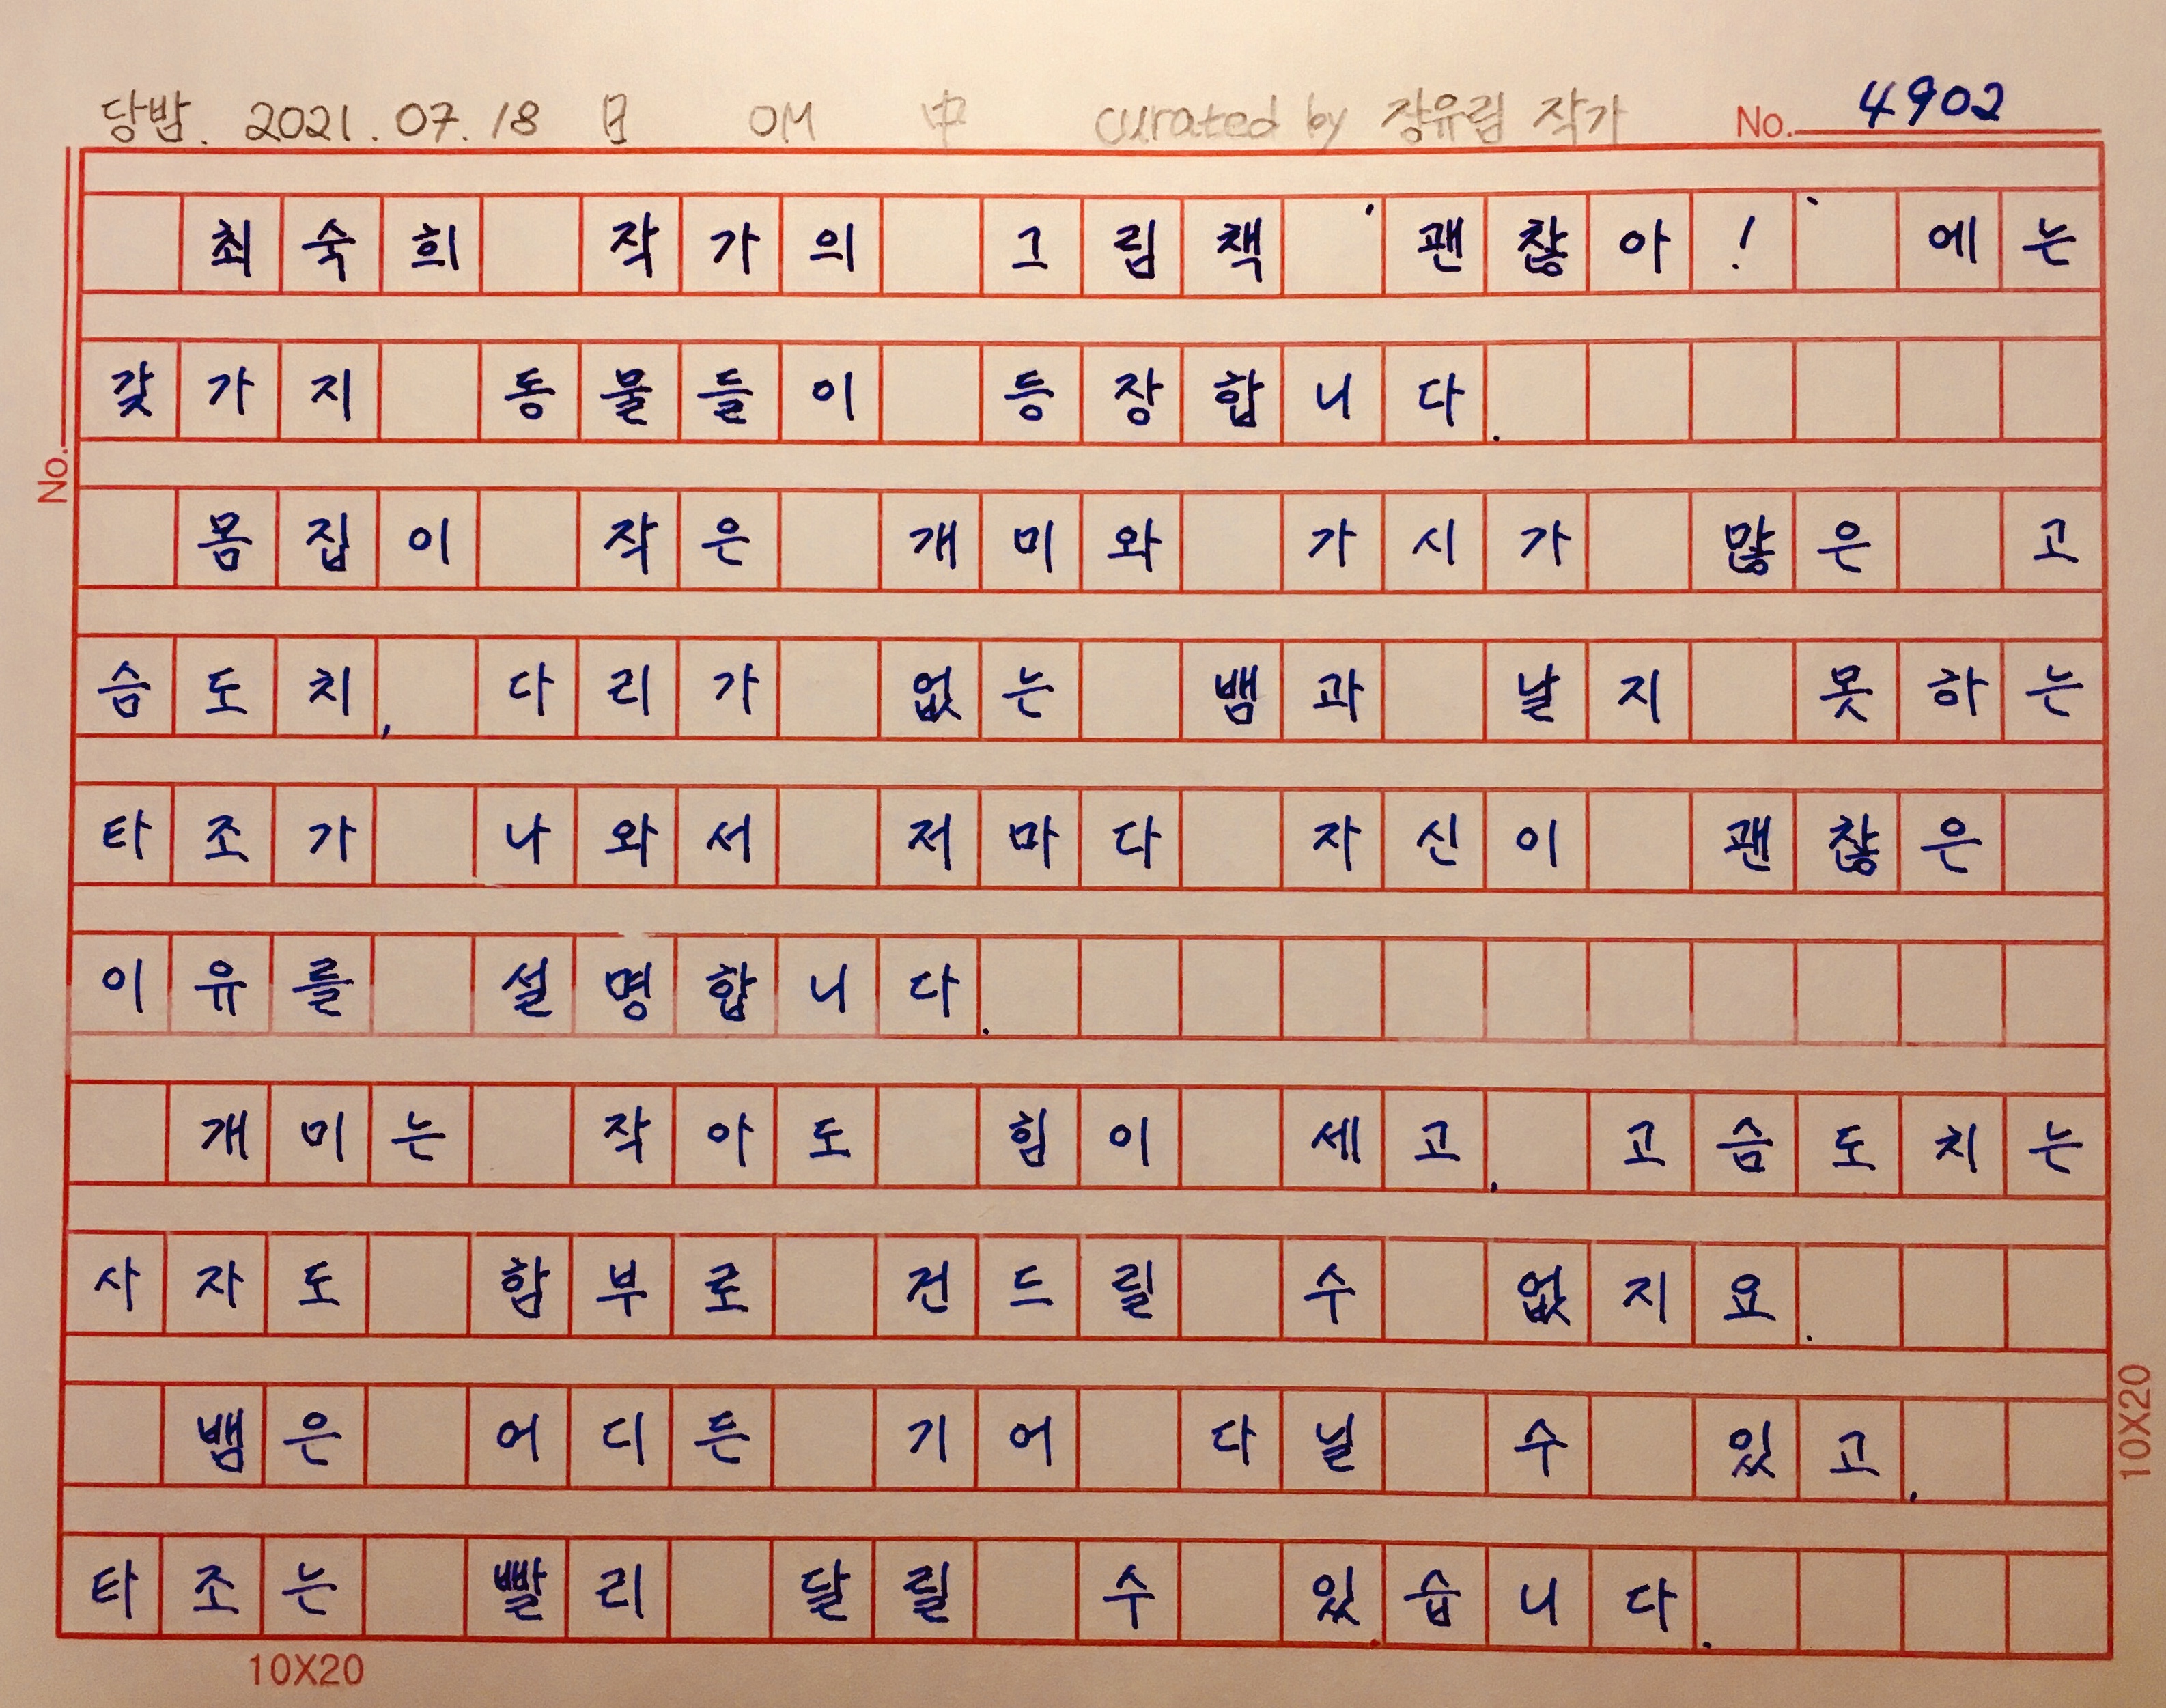 당밤. 2021.07.18 日 OM 中 curated by 장유림 작가 No. 4902
최숙희 작가의 그림책 '괜찮아!'에는
갖가지 동물들이 등장합니다.
No.
몸집이 작은 개미와 가시가 많은 고
슴도치, 다리가 없는 뱀과 날지 못하는
타조가 나와서 저마다 자신이 괜찮은
이유를 설명합니다.
개미는 작아도 힘이 세고, 고슴도치는
사자도 함부로 건드릴 수 없지요.
뱀은 어디든 기어 다닐 수 있고,
10X20
타조는 빨리 달릴 수 있습니다.
10X20